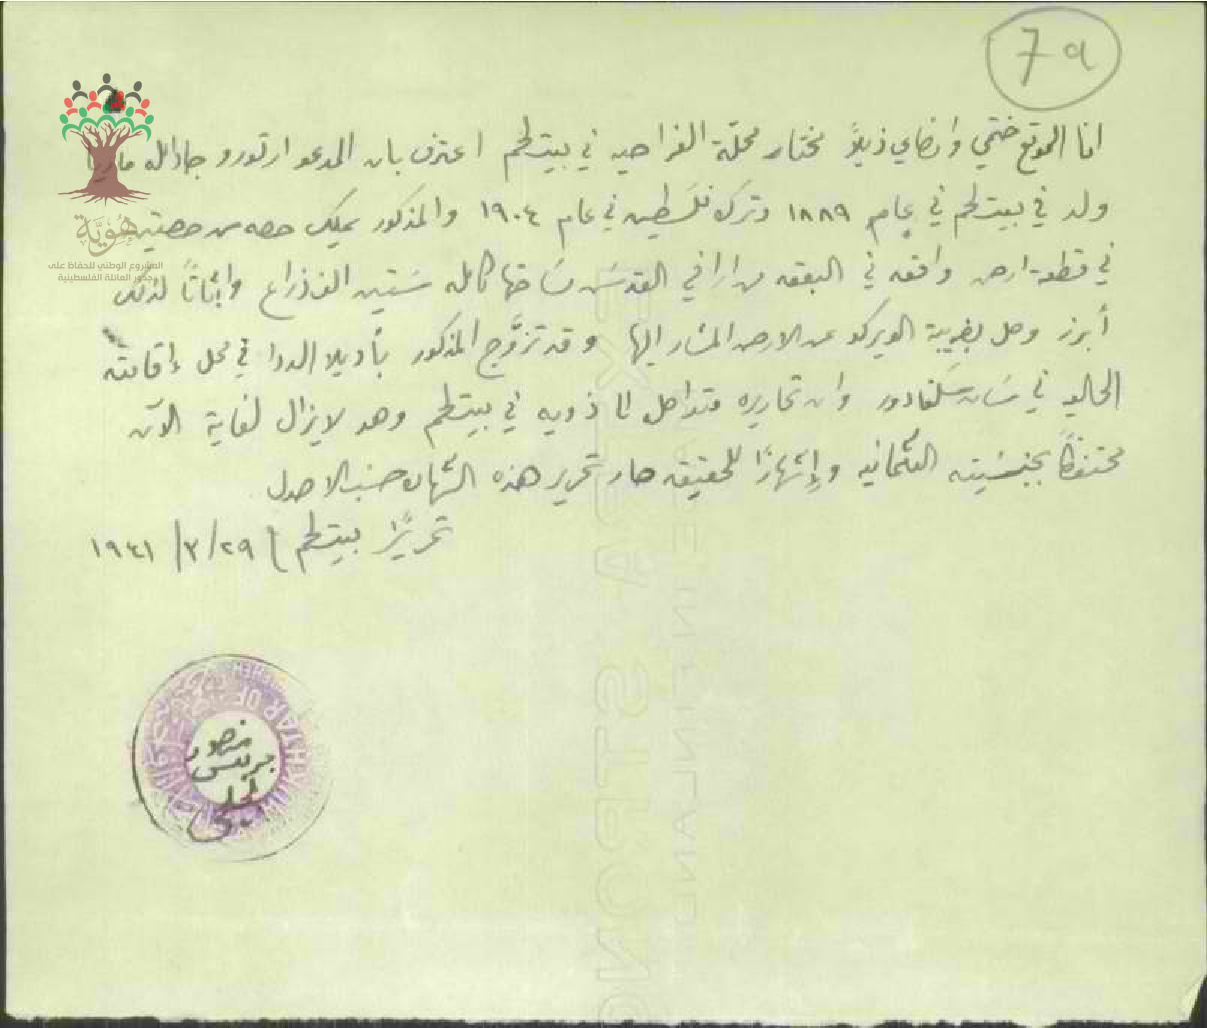 7a
انا الموقع ختمي وامضاي ذيلاً مختار محلّة الفراحيه في بيت لحم اعترف بان المدعو ارتورو جادالله ماريا
ولد في بيت لحم في عام ١٨٨٩ وترك فلسطين في عام ١٩٠٤ والمذكور يملك حصه من حصتين
في قطعة ارض واقعه في البقعه من اراضي القدس مساحتها كامله ستين الف ذراع واثباتاً لذلك
أبرز وصل بضريبة الويركو عن الارض المشار اليها وقد تزوَّج المذكور بأديلا الددا في محل إقامته
الحاليه في سان سلفادور وان تحاريره متواصل الى ذويه في بيت لحم وهو لا يزال لغاية الآن
محتفظاً بجنسيته العثمانيه وإشهارًا للحقيقه صار تحرير هذه الشهاده حسب الاصول
تحريرًا بيت لحم ٢٩/٣/١٩٤١
منصور
جريس
هُوِيَّة
المشروع الوطني للحفاظ على
جذور العائلة الفلسطينية
MUKHTAR OF
EXTRA STRONG
MADE IN FINLAND